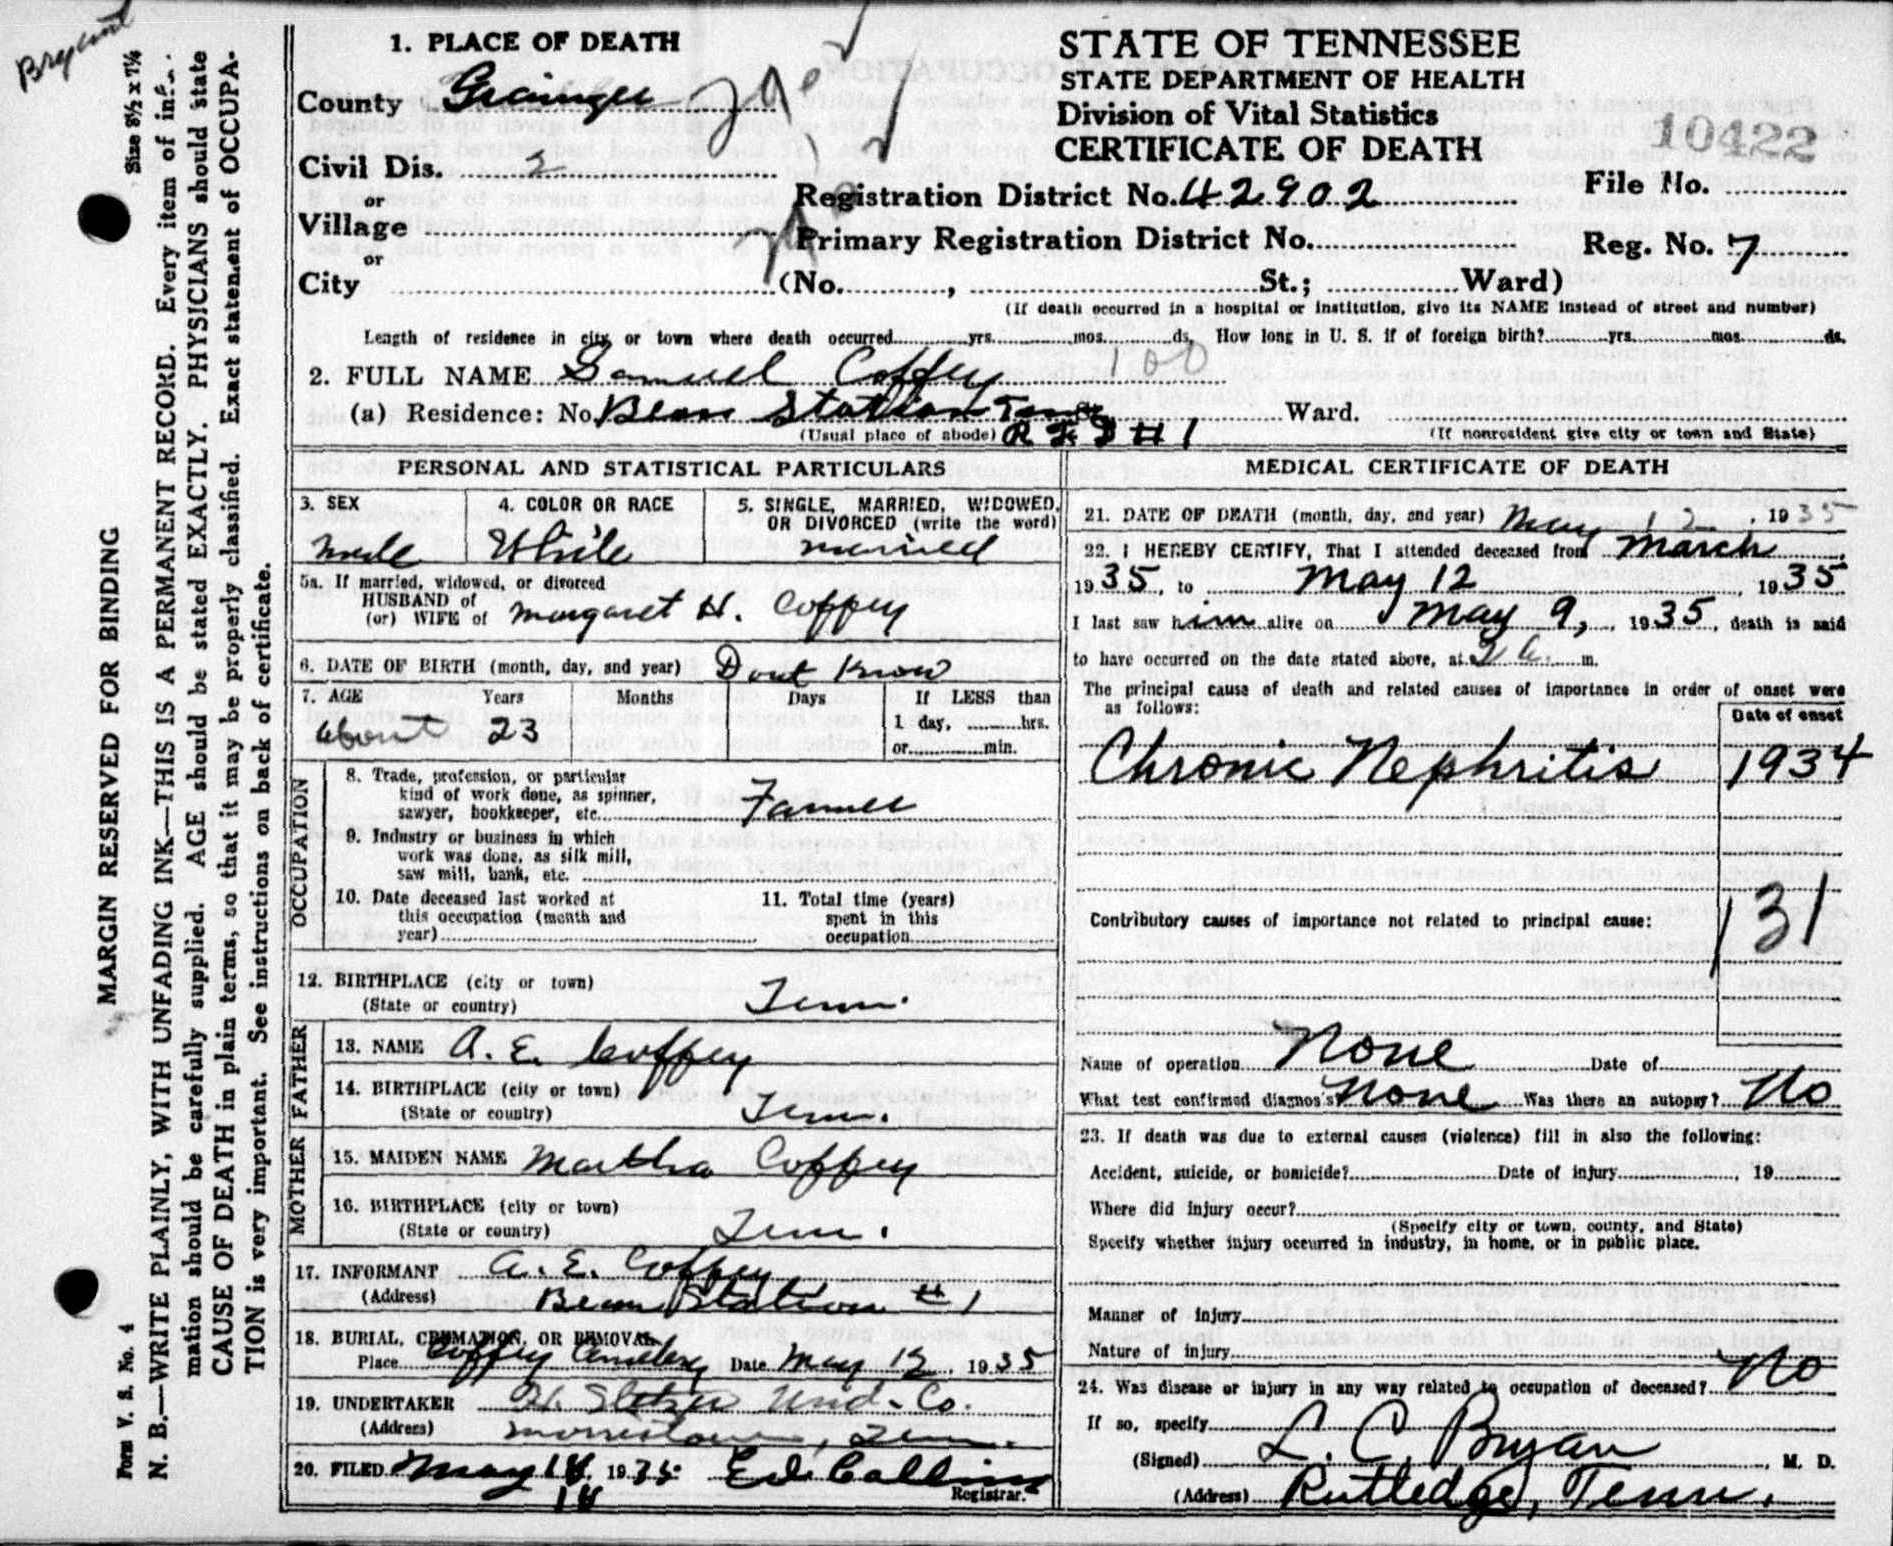 Bryant
Size 8½ x 7¼
MARGIN RESERVED FOR BINDING
N. B.—WRITE PLAINLY, WITH UNFADING INK—THIS IS A PERMANENT RECORD. Every item of infor-
mation should be carefully supplied. AGE should be stated EXACTLY. PHYSICIANS should state
CAUSE OF DEATH in plain terms, so that it may be properly classified. Exact statement of OCCUPA-
TION is very important. See instructions on back of certificate.
Form V. S. No. 4
1. PLACE OF DEATH
County Grainger
Civil Dis. 2
or
Village
or
City
STATE OF TENNESSEE
STATE DEPARTMENT OF HEALTH
Division of Vital Statistics
CERTIFICATE OF DEATH
10422
Registration District No. 42902
File No.
Primary Registration District No.
Reg. No. 7
(No. , St.; Ward)
(If death occurred in a hospital or institution, give its NAME instead of street and number)
Length of residence in city or town where death occurred yrs. mos. ds. How long in U. S. if of foreign birth? yrs. mos. ds.
2. FULL NAME Samuel Coffey 100
(a) Residence: No. Bean Station Tenn Ward.
(Usual place of abode) R F D # 1 (If nonresident give city or town and State)
PERSONAL AND STATISTICAL PARTICULARS
3. SEX
male
4. COLOR OR RACE
White
5. SINGLE, MARRIED, WIDOWED,
OR DIVORCED (write the word)
married
5a. If married, widowed, or divorced
HUSBAND of
(or) WIFE of Margaret H. Coffey
6. DATE OF BIRTH (month, day, and year) Dont Know
7. AGE Years Months Days If LESS than
1 day, hrs.
or min.
about 23
OCCUPATION
8. Trade, profession, or particular
kind of work done, as spinner,
sawyer, bookkeeper, etc. Farmer
9. Industry or business in which
work was done, as silk mill,
saw mill, bank, etc.
10. Date deceased last worked at
this occupation (month and
year)
11. Total time (years)
spent in this
occupation
12. BIRTHPLACE (city or town)
(State or country) Tenn.
FATHER
13. NAME A. E. Coffey
14. BIRTHPLACE (city or town)
(State or country) Tenn.
MOTHER
15. MAIDEN NAME Martha Coffey
16. BIRTHPLACE (city or town)
(State or country) Tenn.
17. INFORMANT A. E. Coffey
(Address) Bean Station # 1
18. BURIAL, CREMATION, OR REMOVAL
Place Coffey Cemetery Date May 12, 1935
19. UNDERTAKER Und. Co.
(Address) Morristown, Tenn.
20. FILED May 14 1935 Ed Collins
14 Registrar.
MEDICAL CERTIFICATE OF DEATH
21. DATE OF DEATH (month, day, and year) May 12, 1935
22. I HEREBY CERTIFY, That I attended deceased from March,
1935 to May 12, 1935
I last saw him alive on May 9, 1935, death is said
to have occurred on the date stated above, at 2 a. m.
The principal cause of death and related causes of importance in order of onset were
as follows:
Date of onset
Chronic Nephritis 1934
131
Contributory causes of importance not related to principal cause:
Name of operation None Date of
What test confirmed diagnosis? None Was there an autopsy? No
23. If death was due to external causes (violence) fill in also the following:
Accident, suicide, or homicide? Date of injury , 19
Where did injury occur?
(Specify city or town, county, and State)
Specify whether injury occurred in industry, in home, or in public place.
Manner of injury
Nature of injury
24. Was disease or injury in any way related to occupation of deceased? No
If so, specify
(Signed) L. C. Bryan, M. D.
(Address) Rutledge, Tenn.